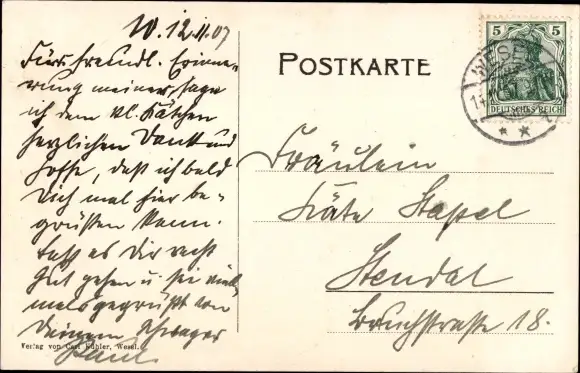 W. 12.11.07
Fürs freundl. Erinne-
rung meiner, sage
ich dem kl. Kätchen
herzlichen Dank und
hoffe, daß ich bald
Dich mal hier be-
grüßen kann.
Lass es Dir recht
gut gehen u. sei viel-
mals gegrüßt von
Deinem Schwager
Paul.
Verlag von Carl Kühler, Wesel.
POSTKARTE
5 5
DEUTSCHES REICH
WESEL
Fräulein
Käte Stapel
Stendal
Bruchstraße 18.